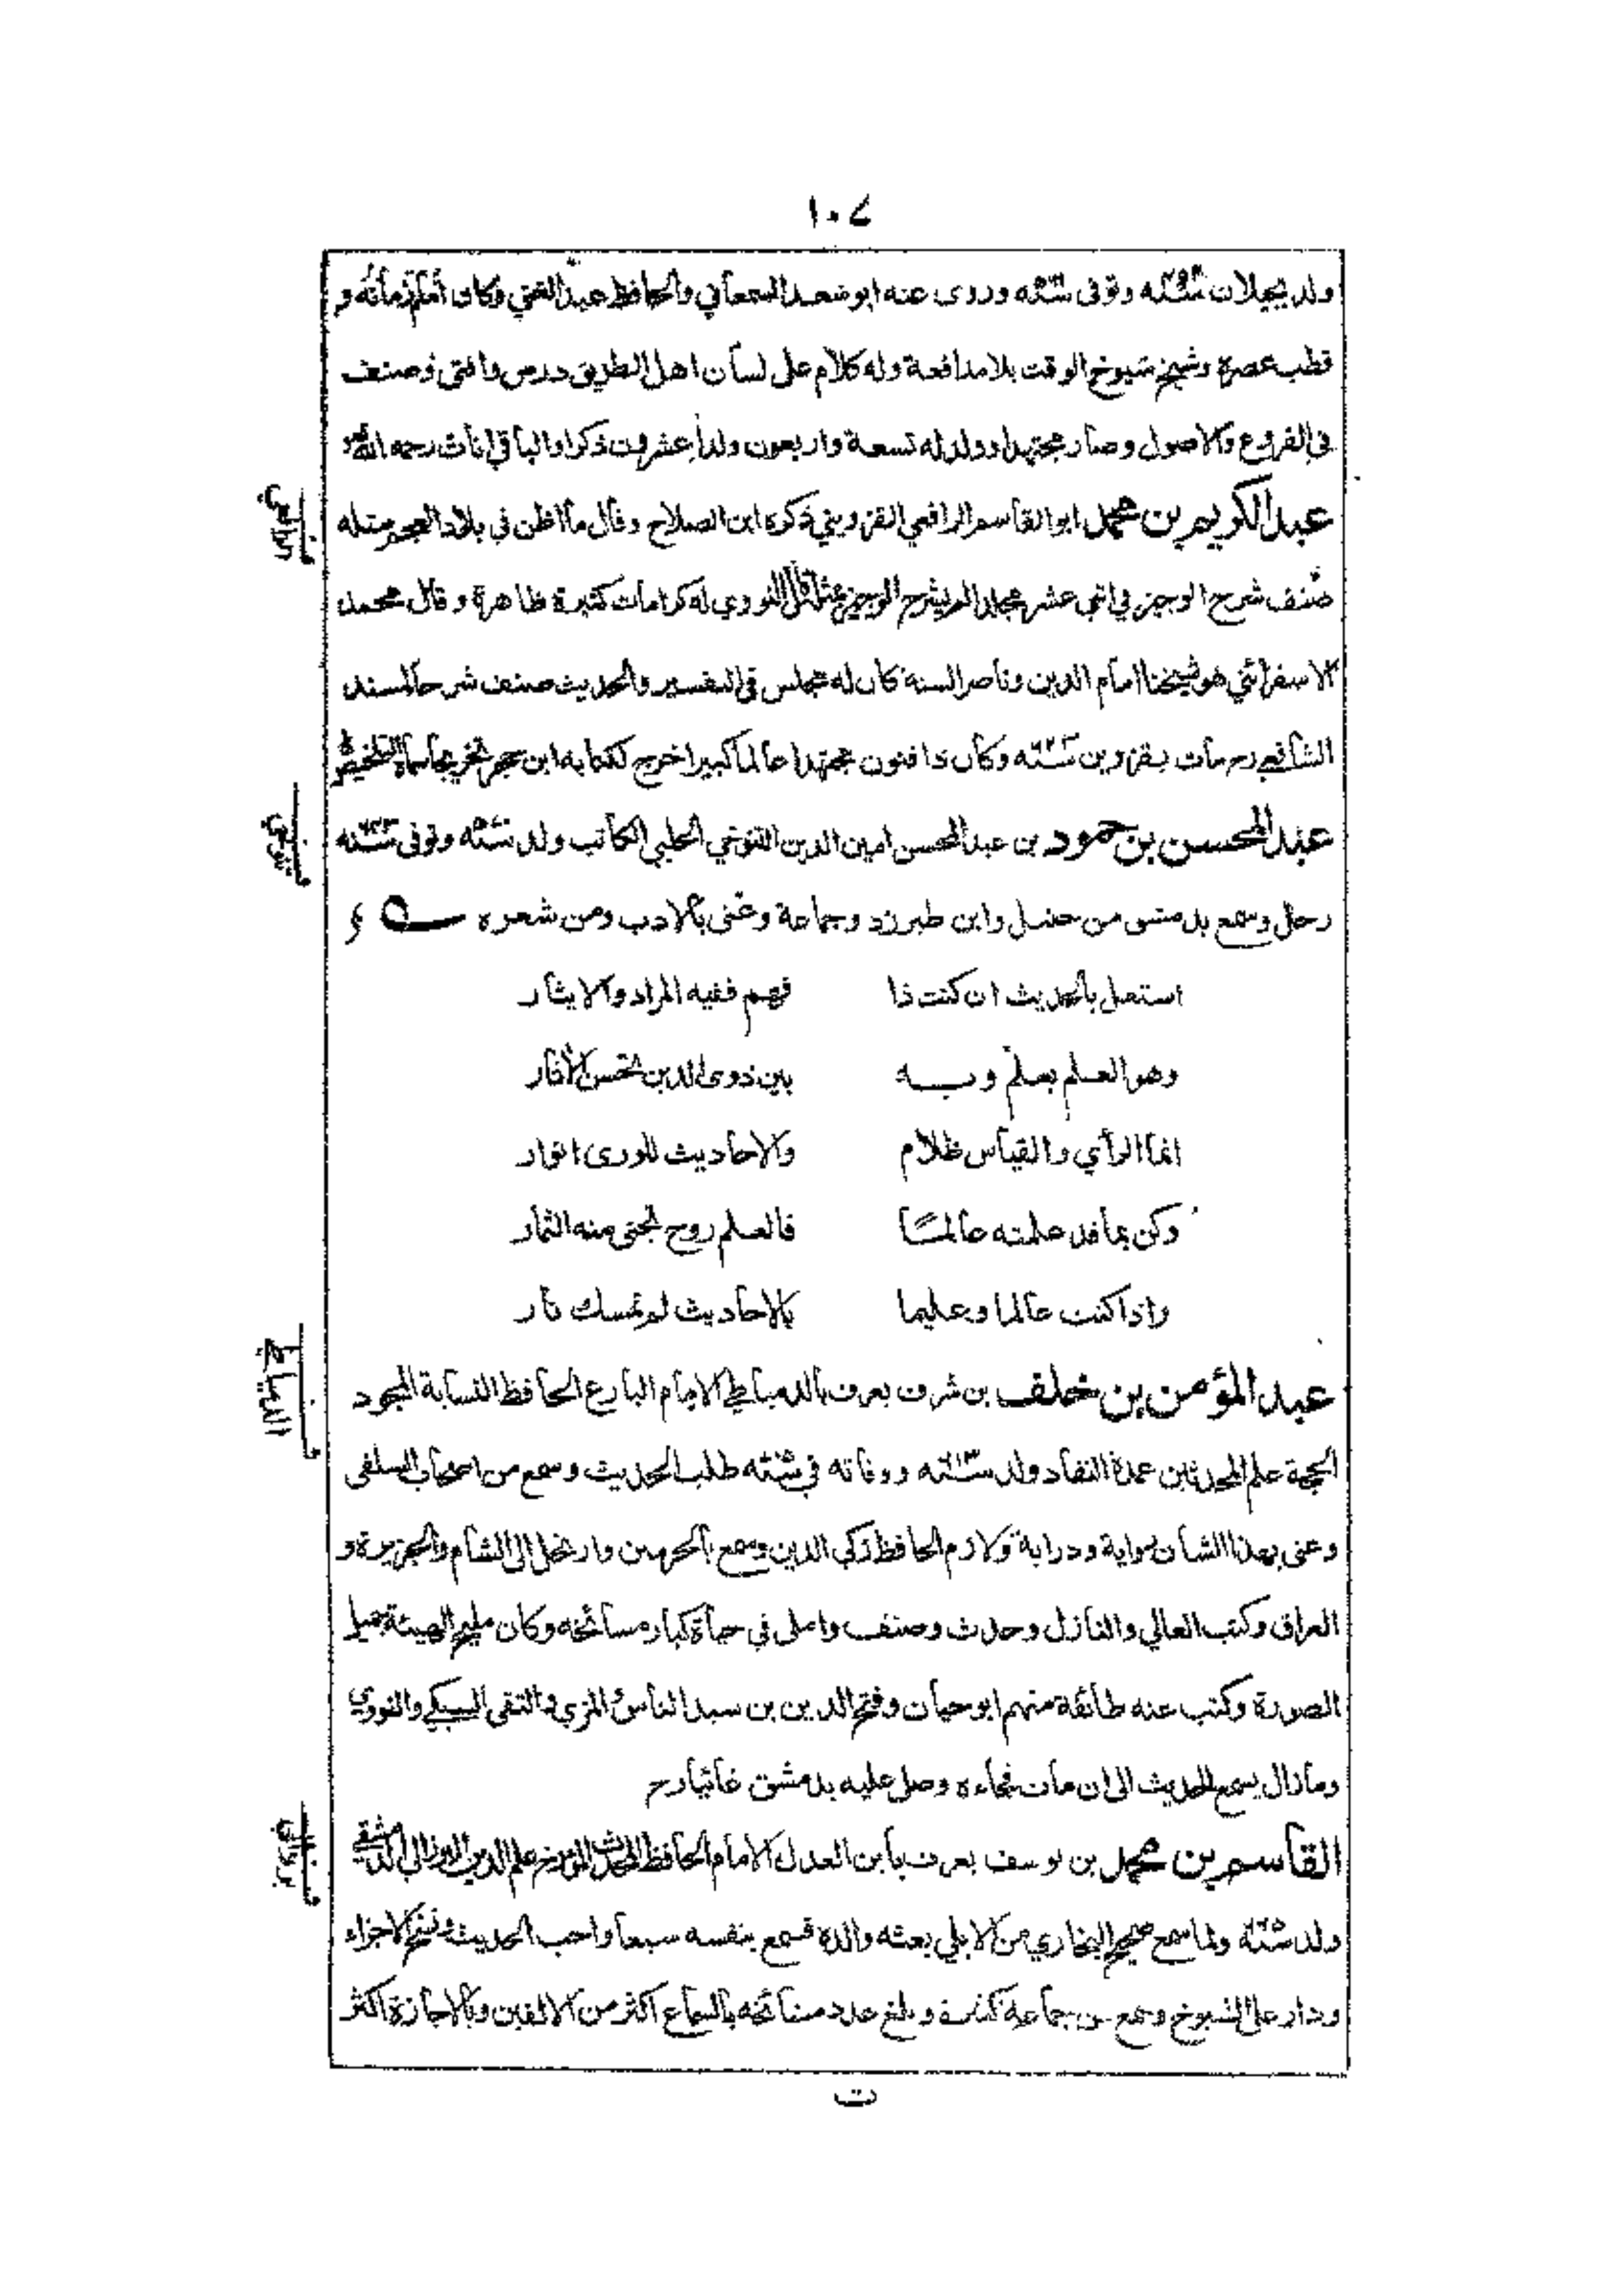 ١٠٧
ولد بجيلان وتوفى وروى عنه ابو سعد السمعاني والحافظ عبد الغني وكان امام زمانه و
قطب عصره وشيخ شيوخ الوقت بلا مدافعة وله كلام على لسان اهل الطريق درس وافتى وصنف
في الفروع والاصول وصار مجتهدا وولد له تسعة واربعون ولدا عشرون ذكرا والباقي اناث رحمه الله
الرافعي
عبد الكريم بن محمد ابو القاسم الرافعي القزويني ذكره ابن الصلاح وقال ما اظن في بلاد العجم مثله
صنف شرح الوجيز في اثني عشر مجلدا لم يشرح الوجيز بمثله قال النووي له كرامات كثيرة ظاهرة وقال محمد
الاسفرائني هو شيخنا امام الدين وناصر السنة كان له مجلس في التفسير والحديث صنف شرحا لمسند
الشافعي رح مات بقزوين وكان ذا فنون مجتهدا عالما كبيرا خرج لكتابه ابن حجر تخريجا سماه التلخيص
عبد المحسن بن حمود بن عبد المحسن امين الدين التنوخي الحلبي الكاتب ولد وتوفى
رحل وسمع بدمشق من حنبل وابن طبرزد وجماعة وعنى بالادب ومن شعره
استعمل بالحديث ان كنت ذا فهم ففيه المراد والايثار
وهو العلم معلم وبه بين ذوى الدين تحسن الآثار
انما الرأي والقياس ظلام والاحاديث للورى انوار
وكن بما قد علمته عالما فالعلم روح تجتى منه الثمار
واذا كنت عالما وعليما بالاحاديث لم تمسك نار
الدمياطي
عبد المؤمن بن خلف بن شرف يعرف بالدمياطي الامام البارع الحافظ النسابة المجود
الحجة علم المحدثين عمدة النقاد ولد ووفاته في طلب الحديث وسمع من اصحاب السلفى
وعنى بهذا الشان رواية ودراية ولازم الحافظ زكي الدين وسمع بالحرمين وارتحل الى الشام والجزيرة و
العراق وكتب العالي والنازل وحدث وصنف واملى في حياة كبار مشائخه وكان مليح الهيئة جميل
الصورة وكتب عنه طائفة منهم ابو حيان وفتح الدين بن سيد الناس والمزي والتقى السبكي والنووي
وما زال يسمع الحديث الى ان مات فجاءة وصلى عليه بدمشق غائبا رح
القاسم بن محمد بن يوسف يعرف بابن العدل الامام الحافظ المحدث المؤرخ علم الدين البرزالي الدمشقي
ولد ولما سمع صحيح البخاري من الاربلي بعثه والده فسمع بنفسه سبعا واحب الحديث ونسخ الاجزاء
ودار على الشيوخ وسمع من جماعة كثيرة وبلغ عدد مشائخه بالسماع اكثر من الالفين وبالاجازة اكثر
ت